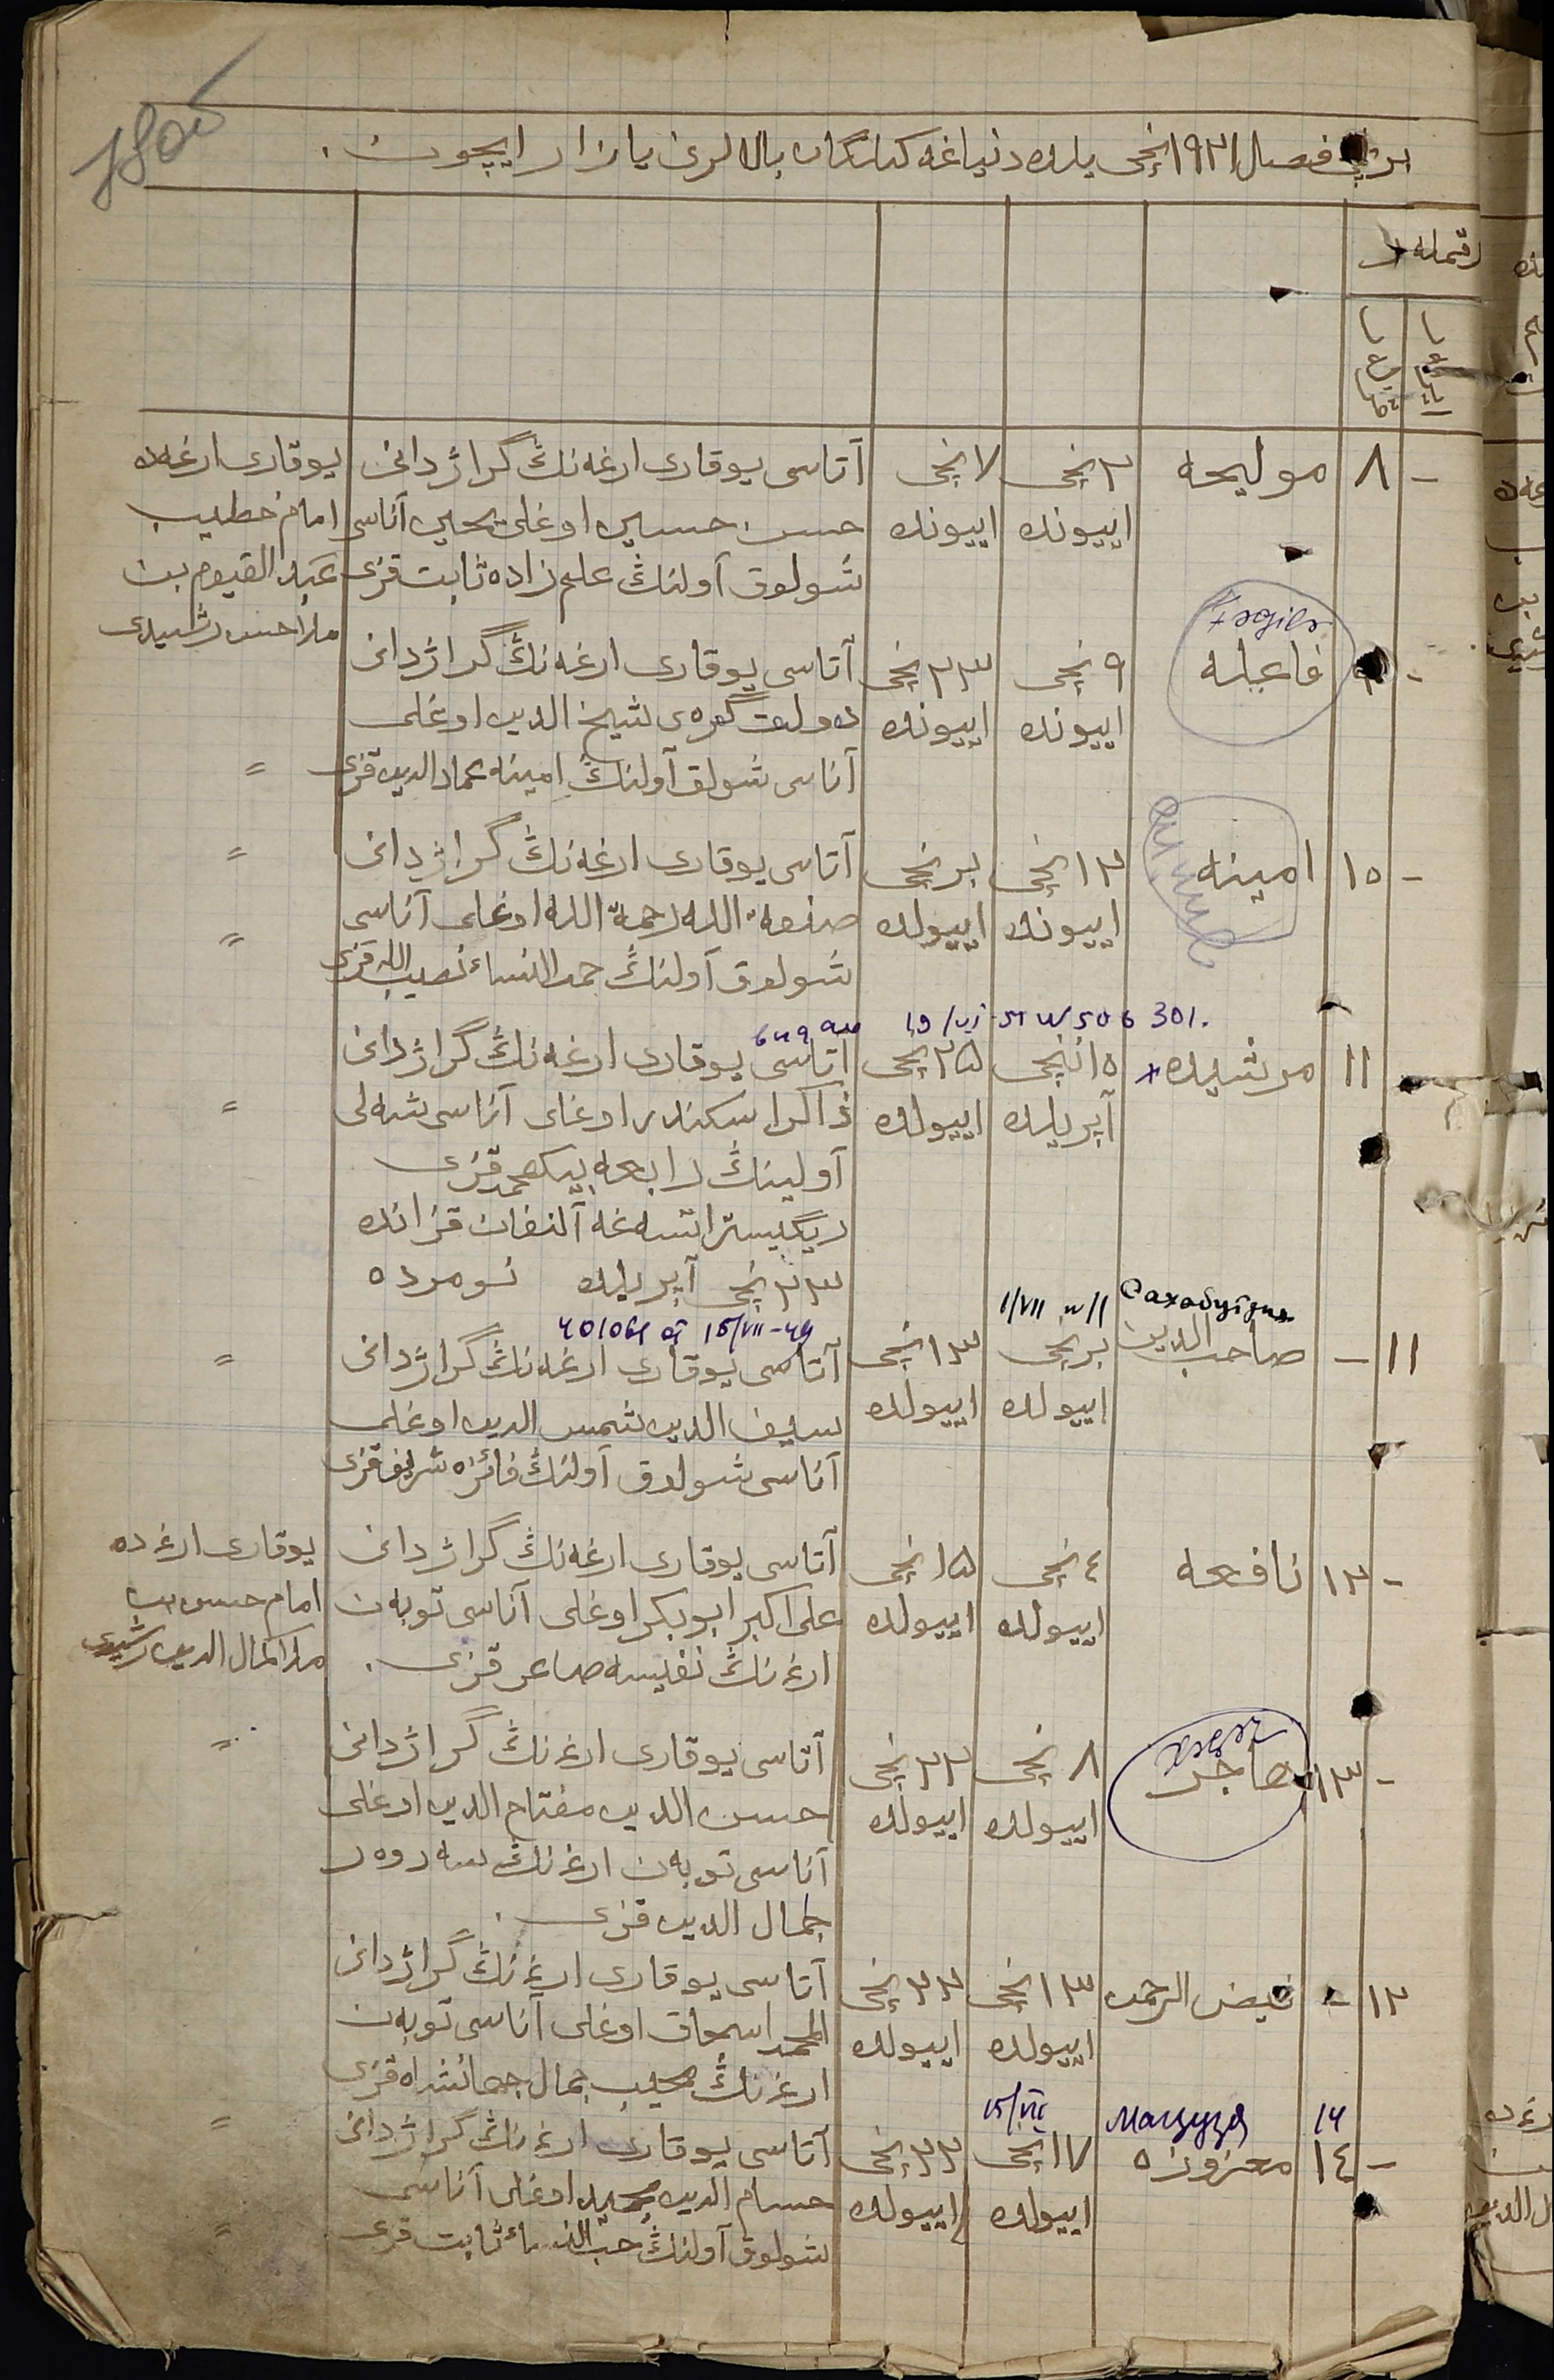 برنچی فصل ١٩٢١نچی یلده دنیاغه کیلگان بالالرنی یازار ایچون.
رقمله ر
٨ - مولیحه
٢نچی اییونده
٧نچی اییونده
آتاسی یوقاری ارغه‌نڭ گراژدانی
حسن حسین اوغلی یحیی آناسی
شولوق آولنڭ علم زاده ثابت قزی
یوقاری ارغه‌ده
امام خطیب
عبد القیوم بن
ملا حسن رشیدی
Fagilə
فاعله
٩نچی اییونده
٢٣نچی اییونده
آتاسی یوقاری ارغه‌نڭ گراژدانی
دولت گەره‌ی شیخ الدین اوغلی
آناسی شولق آولنڭ امینه عماد الدین قزی
〃
١٠ - امینه
١٣نچی اییونده
برنچی اییولده
آتاسی یوقاری ارغه‌نڭ گراژدانی
صنعة الله رحمة الله اوغلی آناسی
شولوق آولنڭ حمد النساء نصیب الله قزی
〃
〃
19/VI-51 № 506 301.
١١ مرشیده
١٥نچی آپریلده
٢٥نچی اییولده
آتاسی یوقاری ارغه‌نڭ گراژدانی
ذاکر اسکندر اوغلی آناسی شه‌لی
آولینڭ رابعه بیکمحمد قزی
ریگیستراتسه‌غه آلنغان قزانده
٢٣نچی آپریلده نومرده
〃
1/VII №11 Сахабутдин
401064 от 15/VII-49
١١ - صاحب الدین
برنچی اییولده
١٣نچی اییولده
آتاسی یوقاری ارغه‌نڭ گراژدانی
سیف الدین شمس الدین اوغلی
آناسی شولوق آولنڭ فائزه شریف قزی
〃
١٢ - نافعه
٤نچی اییولده
١٥نچی اییولده
آتاسی یوقاری ارغه‌نڭ گراژدانی
علی اکبر ابوبکر اوغلی آناسی توبه‌ن
ارغه‌نڭ نفیسه صابر قزی.
یوقاری ارغه‌ده
امام حسن بن
ملا کمال الدین رشیدی
١٣ - هاجر
٨نچی اییولده
٢٢نچی اییولده
آتاسی یوقاری ارغه‌نڭ گراژدانی
حسن الدین مفتاح الدین اوغلی
آناسی توبه‌ن ارغه‌نڭ سه‌روه‌ر
جمال الدین قزی.
〃
١٢ - فیض الرحمن
١٣نچی اییولده
٢٢نچی اییولده
آتاسی یوقاری ارغه‌نڭ گراژدانی
محمد اسحاق اوغلی آناسی توبه‌ن
ارغه‌نڭ محلیب جمال جهانشاه قزی
15/VII Магзуза 14
١٤ - معزوزه
١٧نچی اییولده
٢٢نچی اییولده
آتاسی یوقاری ارغه‌نڭ گراژدانی
حسام الدین مجید اوغلی آناسی
شولوق آولنڭ حب النساء ثابت قزی
〃
〃